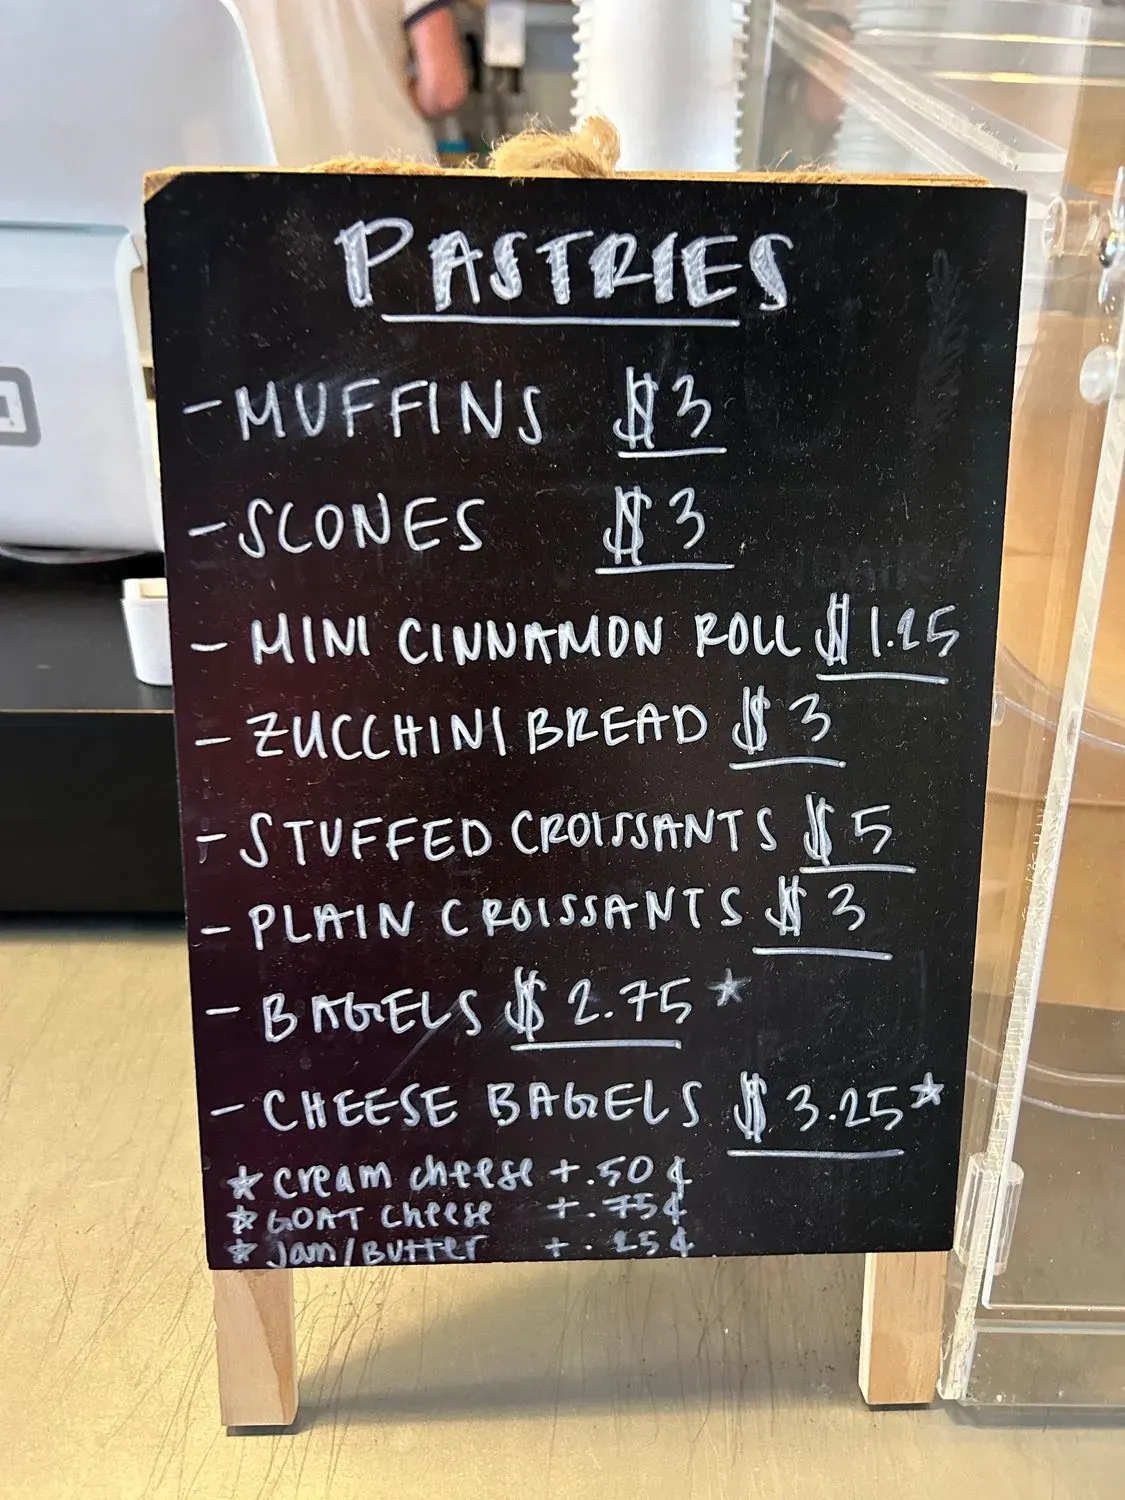 PASTRIES
- MUFFINS $3
- SCONES $3
- MINI CINNAMON ROLL $1.25
- ZUCCHINI BREAD $3
- STUFFED CROISSANTS $5
- PLAIN CROISSANTS $3
- BAGELS $2.75 ☆
- CHEESE BAGELS $3.25 ☆
☆ cream cheese +.50¢
☆ GOAT cheese +.75¢
☆ jam/BUTTer +.25¢